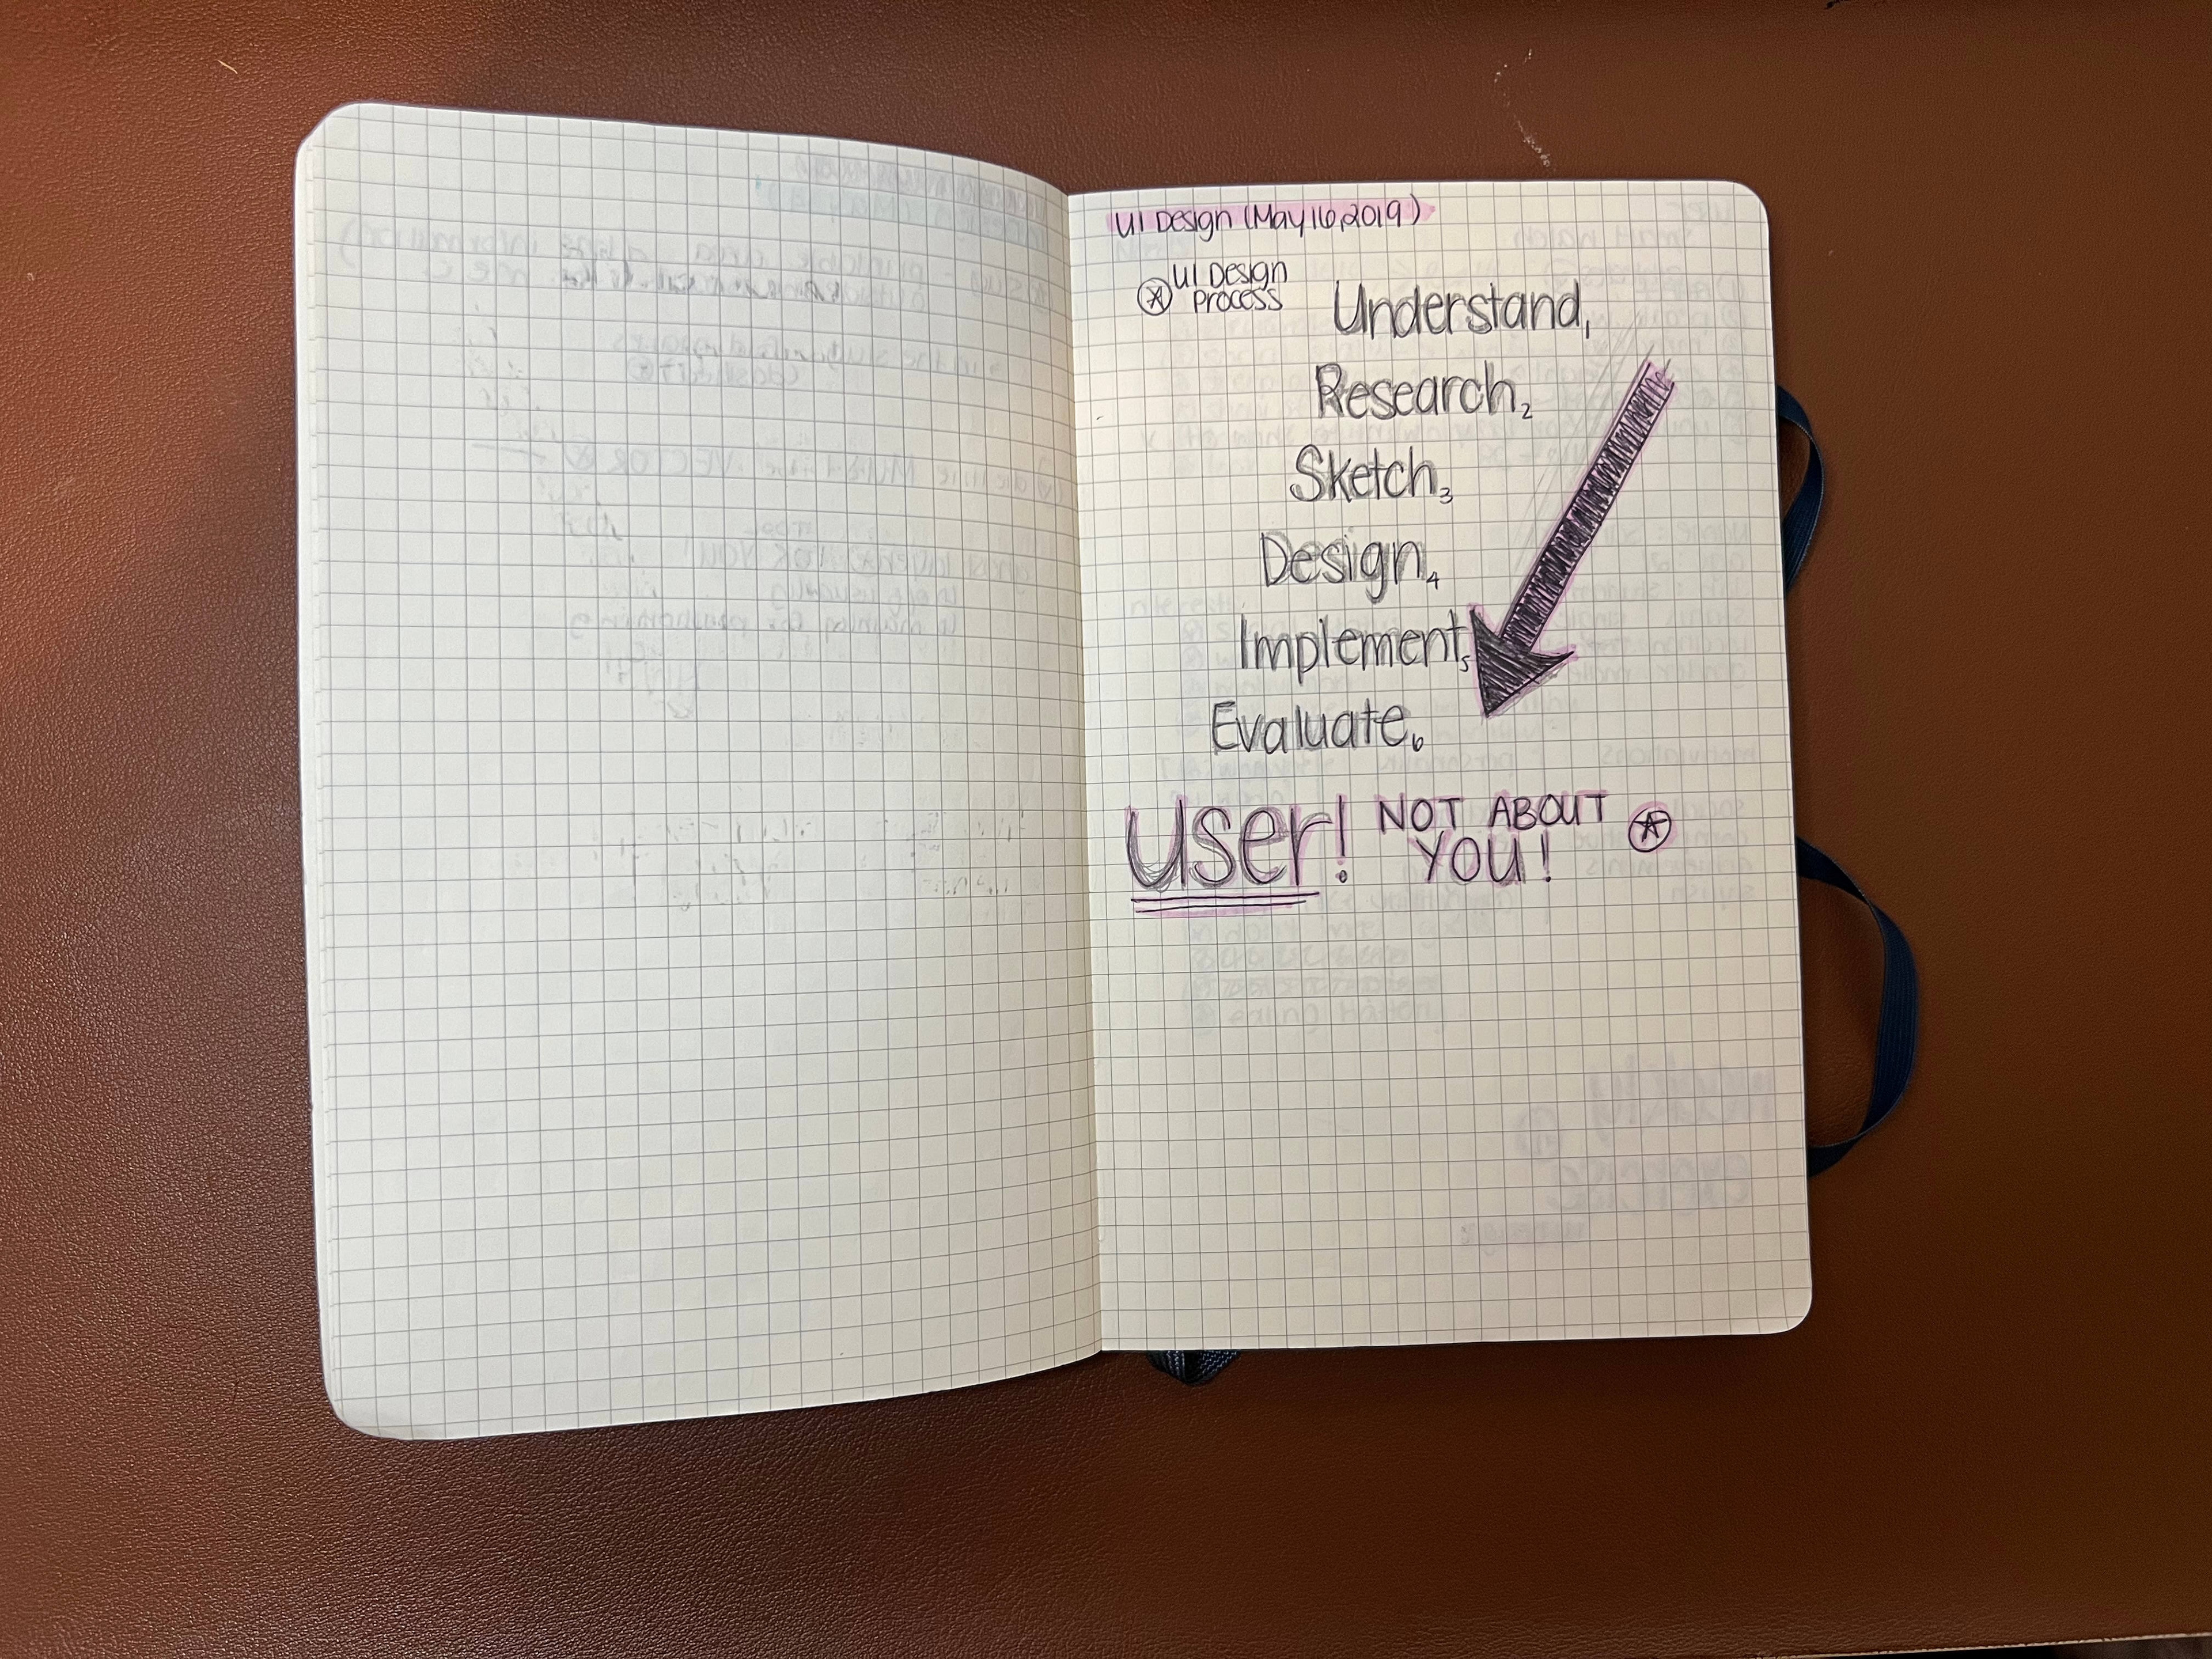 UI Design (May 16, 2019)
UI Design
Process
Understand,1
Research,2
Sketch,3
Design,4
Implement,5
Evaluate,6
user! NOT ABOUT
YOU!